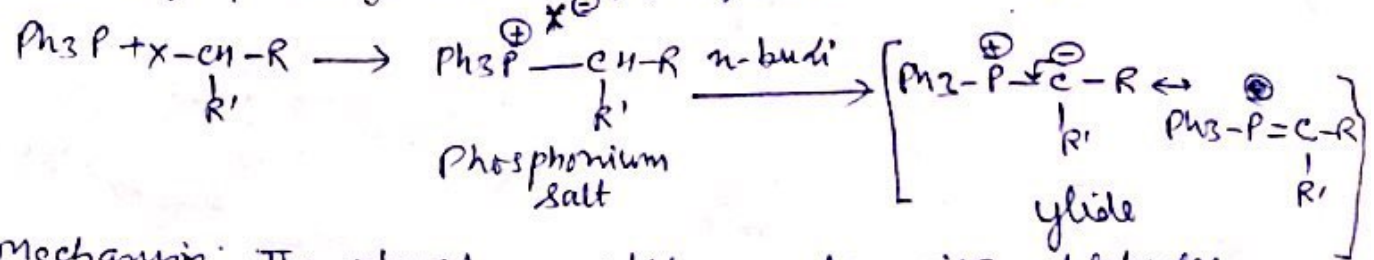 Ph3P + X-CH-R ⟶ Ph3P⊕—CH-R X⊖ n-budi ⟶ [Ph3-P⊕-C⊖-R ↔ Ph3-P=C-R]
R' R' R' R'
Phosphonium
salt
ylide
Mechanism: